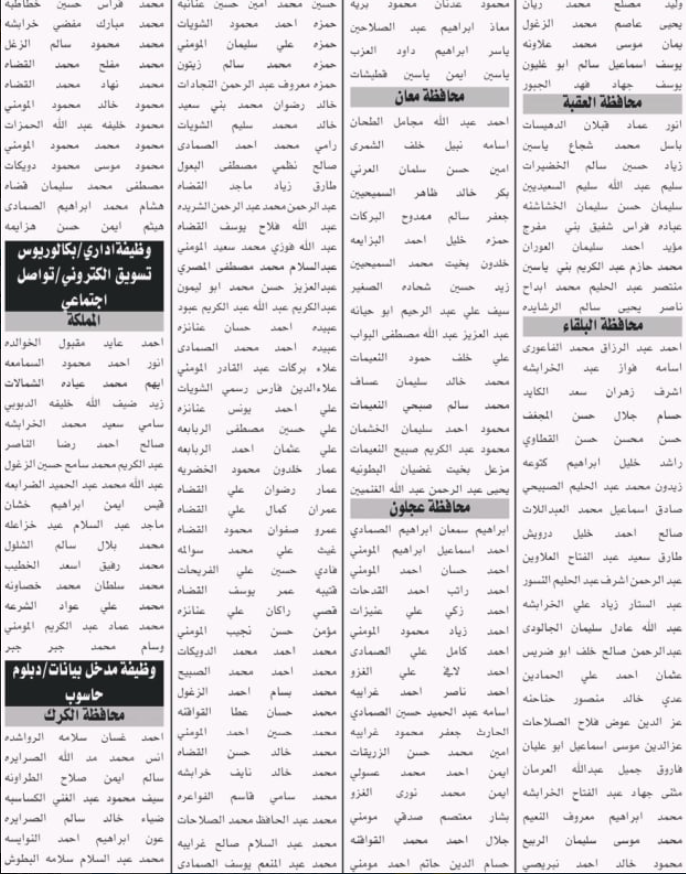 وليد مصلح محمد ريان
يحيى عاصم محمد الزغول
يمان موسى محمد علاونه
يوسف اسماعيل سالم ابو غليون
يوسف جهاد فهد الجبور
محافظة العقبة
انور عماد قبلان الدهيسات
باسل محمد شجاع ياسين
زياد حسين سالم الخضيرات
سليم عبد الله سليم السعيديين
سليمان حسن سليمان الخشاشنه
عباده فراس شفيق بني مفرج
مؤيد احمد سليمان العوران
محمد حازم عبد الكريم بني ياسين
منتصر عبد الحليم محمد ابداح
ناصر يحيى سالم الرشايده
محافظة البلقاء
احمد عبد الرزاق محمد الفاعورى
اسامه فواز عبد الخرابشه
اشرف زهران سعد الكايد
حسام جلال حسن المجغف
حسن محسن حسن القطاوي
راشد خليل ابراهيم كتوعه
زيدون محمد عبد الحليم الصبيحي
صادق اسماعيل محمد العبداللات
صالح احمد خليل درويش
طارق سعيد عبد الفتاح العلاوين
عبد الرحمن اشرف عبد الحليم النسور
عبد الستار زياد علي الخرابشه
عبد الله عادل سليمان الجالودى
عبدالرحمن صالح خلف ابو ضريس
عثمان احمد علي الحمادين
عدي خالد منصور حناحنه
عز الدين عوض فلاح الصلاحات
عزالدين موسى اسماعيل ابو عليان
فاروق جميل عبدالله العرمان
مثنى جهاد عبد الفتاح الخرابشه
محمد ابراهيم معروف النعيم
محمد موسى سليمان الربيع
محمود خالد احمد نبريصي
محمود عدنان محمود بريه
معاذ ابراهيم عبد الصلاحين
ياسر ابراهيم داود العزب
ياسين ايمن ياسين قطيشات
محافظة معان
احمد عبد الله مجامل الطحان
اسامه نبيل خلف الشمرى
امين حسن سلمان العرني
بكر خالد ظاهر السميحيين
جعفر سالم ممدوح البركات
حمزه خليل احمد البزايعه
خلدون بخيت محمد السميحيين
زيد حسين شحاده الصغير
سيف علي عبد الرحيم ابو حيانه
عبد العزيز عبد الله مصطفى البواب
علي خلف حمود النعيمات
محمد خالد سليمان عساف
محمد سالم صبحي النعيمات
محمود احمد سليمان الخشمان
محمود عبد الكريم صبيح النعيمات
مزعل بخيت غضيان البطونيه
يحيى عبد الرحمن عبد الله الغنميين
محافظة عجلون
ابراهيم سمعان ابراهيم الصمادي
احمد اسماعيل ابراهيم المومني
احمد حسان احمد المومني
احمد راتب احمد القدحات
احمد زكي علي عنيزات
احمد زياد محمود المومني
احمد كامل علي الصمادى
احمد لافي علي الغزو
احمد ناصر احمد غرايبه
اسامه عبد الحميد حسين الصمادي
الحارث جعفر محمود غرايبه
امين محمد حسن الزريقات
ايمن احمد محمد عسولي
ايمن محمد نورى الغزو
بشار معتصم صدقي مومني
جلال احمد محمد القواقنه
حسام الدين حاتم احمد مومني
حسين محمد امين حسين عنانبه
حمزه احمد محمود الشويات
حمزه علي سليمان المومني
حمزه محمد سالم زيتون
حمزه معروف عبد الرحمن النجادات
خالد رضوان محمد بني سعيد
خالد محمد سليم الشويات
رامي محمد احمد الصمادى
صالح نظمي مصطفى البعول
طارق زياد ماجد القضاه
عبد الرحمن محمد عبد الرحمن الشريده
عبد الله فلاح يوسف القضاه
عبد الله فوزي محمد سعيد المومني
عبدالسلام محمد مصطفى المصري
عبدالعزيز حسن محمد ابو ليمون
عبدالكريم عبد الله عبد الكريم عبود
عبيده احمد حسان عنانزه
عبيده احمد محمد الصمادى
علاء بركات عبد القادر المومني
علاءالدين فارس رسمي الشويات
علي احمد يونس عنانزه
علي حسين مصطفى الربابعه
علي عثمان احمد الربابعه
عمار خلدون محمود الخضريه
عمار رضوان علي القضاه
عمران كمال علي القضاه
عمرو صفوان محمود القضاه
غيث علي محمد سوالمه
فادي حسين علي الفريحات
قتيبه عمر يوسف القضاه
قصي راكان علي عنانزه
مؤمن حسن نجيب المومني
محمد احمد محمد الدويكات
محمد احمد محمد الصبيح
محمد بسام احمد الزغول
محمد حسان عطا القواقنه
محمد حسين احمد المومني
محمد خالد حسن القضاه
محمد خالد نايف خرابشه
محمد سامي قاسم الفواعره
محمد عبد الحافظ محمد الصلاحات
محمد عبد السلام صالح غرايبه
محمد عبد المنعم يوسف الصمادى
محمد فراس حسين خطاطبه
محمد مبارك مفضي خرابشه
محمد محمود سالم الزغل
محمد مفلح محمد القضاه
محمد نهاد محمد القضاه
محمود خالد محمود المومني
محمود خليفه عبد الله الحمزات
محمود محمد محمود المومني
محمود موسى محمود دويكات
مصطفى محمد سليمان قضاه
هشام محمد ابراهيم الصمادى
هيثم ايمن حسن هزايمه
وظيفةاداري/بكالوريوس
تسويق الكتروني/تواصل
اجتماعي
المملكة
احمد عايد مقبول الخوالده
انور احمد محمود السمامعه
ايهم محمد عباده الشمالات
زيد ضيف الله خليفه الدبوبي
سامي سعيد محمد الخرابشه
صالح احمد رضا الناصر
عبد الكريم محمد سامح حسين الزغول
عبد الله محمد عبد الحميد الضرابعه
قيس ايمن ابراهيم خشان
ماجد عبد السلام عيد خزاعله
محمد بلال سالم الشلول
محمد رفيق اسعد الخطيب
محمد سلطان محمد خصاونه
محمد علي عواد الشرعه
محمد عماد عبد الكريم المومني
وسام محمد جبر جبر
وظيفة مدخل بيانات/دبلوم
حاسوب
محافظة الكرك
احمد غسان سلامه الرواشده
انس محمد مد الله الصرايره
سالم ايمن صلاح الطراونه
سيف محمود عبد الغني الكساسبه
ضياء خالد سالم الصرايره
عون ابراهيم احمد النوايسه
محمد عبد السلام سلامه البطوش